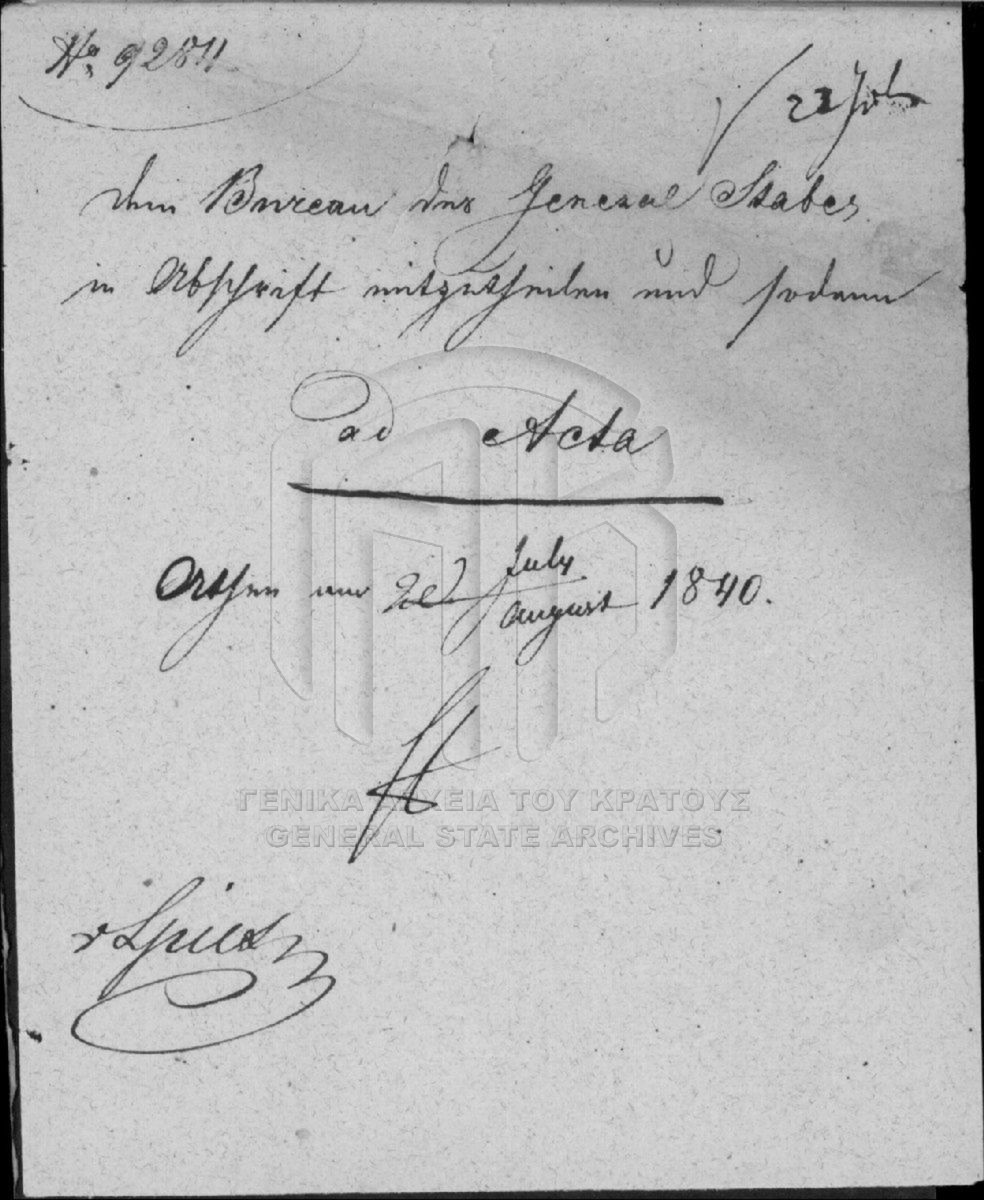 No 9284
22 Jul
dem Bureau des General Stabes
in Abschrift mitzutheilen und sodann
ad Acta
Athen am July
August 1840.
ΓΕΝΙΚΑ ΑΡΧΕΙΑ ΤΟΥ ΚΡΑΤΟΥΣ
GENERAL STATE ARCHIVES